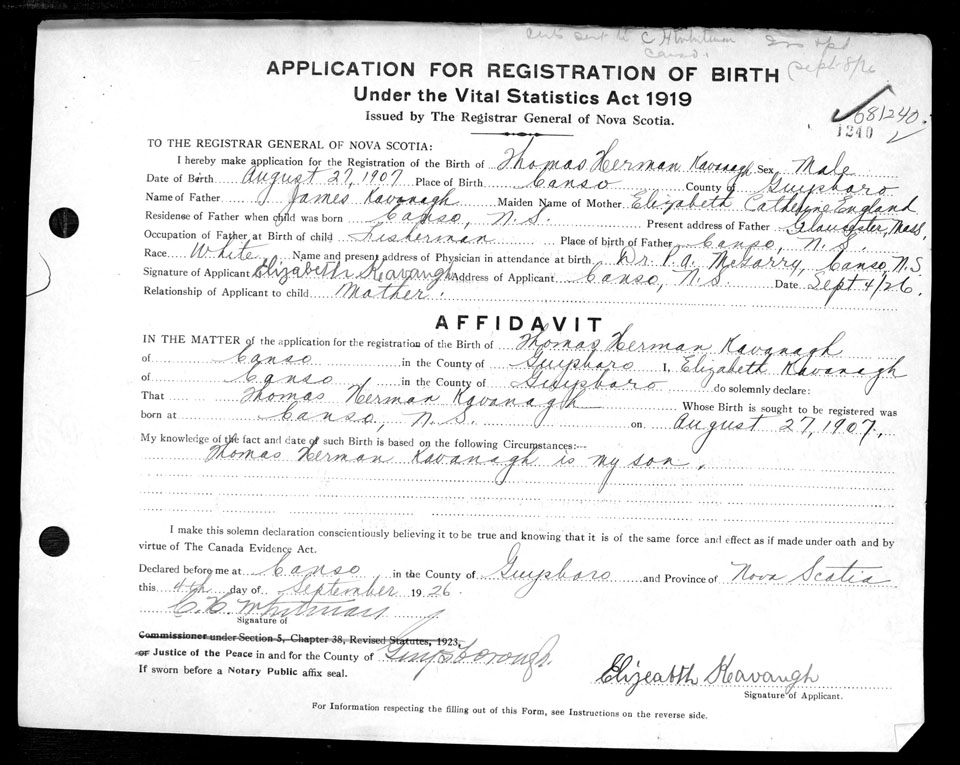 Canso.
Sept 8/26
APPLICATION FOR REGISTRATION OF BIRTH
Under the Vital Statistics Act 1919
Issued by The Registrar General of Nova Scotia.
681240.
1240
TO THE REGISTRAR GENERAL OF NOVA SCOTIA:
I hereby make application for the Registration of the Birth of Thomas Herman Kavanagh Sex Male
Date of Birth August 27, 1907 Place of Birth Canso County of Guysboro
Name of Father James Kavanagh Maiden Name of Mother Elizabeth Catherine England
Residense of Father when child was born Canso, N.S. Present address of Father Gloucester, Mass.
Occupation of Father at Birth of child Fisherman Place of birth of Father Canso, N.S.
Race White Name and present address of Physician in attendance at birth Dr. P.A. McGarry, Canso, N.S.
Signature of Applicant Elizabeth Kavangh Address of Applicant Canso, N.S. Date Sept 4/26.
Relationship of Applicant to child Mother.
AFFIDAVIT
IN THE MATTER of the application for the registration of the Birth of Thomas Herman Kavanagh
of Canso in the County of Guysboro I, Elizabeth Kavanagh
of Canso in the County of Guysboro do solemnly declare:
That Thomas Herman Kavanagh Whose Birth is sought to be registered was
born at Canso, N.S. on August 27, 1907.
My knowledge of the fact and date of such Birth is based on the following Circumstances:--
Thomas Herman Kavanagh is my son.
I make this solemn declaration conscientiously believing it to be true and knowing that it is of the same force and effect as if made under oath and by
virtue of The Canada Evidence Act.
Declared before me at Canso in the County of Guysboro and Province of Nova Scotia
this 4th day of September 1926.
C. H. Whitman
Signature of
Commissioner under Section 5, Chapter 38, Revised Statutes, 1923,
or Justice of the Peace in and for the County of Guysborough.
If sworn before a Notary Public affix seal.
Elizeabth Kavangh
Signature of Applicant.
For Information respecting the filling out of this Form, see Instructions on the reverse side.